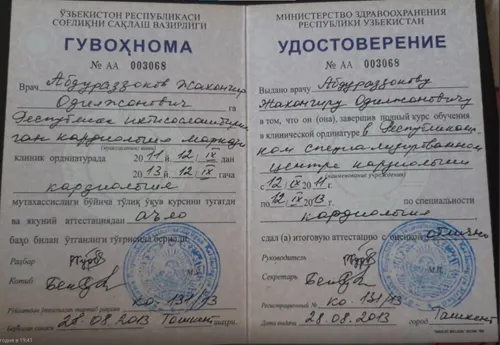 ЎЗБЕКИСТОН РЕСПУБЛИКАСИ
СОҒЛИҚНИ САҚЛАШ ВАЗИРЛИГИ
ГУВОҲНОМА
№ АА 003068
Врач Абдураззоков Жахонгир
Одилжонович га
Республика ихтисослаштирил
ган кардиология маркази
клиник ординатурада 2011 й. 12/IX дан
2013 й. 12/IX гача
кардиология
мутахассислиги бўйича тўлиқ ўқув курсини тугатди
ва якуний аттестациядан аъло
баҳо билан ўтганлиги тўғрисида берилди.
Раҳбар
Котиб
ко. 131/13
28.08.2013 Тошкент шаҳри.
МИНИСТЕРСТВО ЗДРАВООХРАНЕНИЯ
РЕСПУБЛИКИ УЗБЕКИСТАН
УДОСТОВЕРЕНИЕ
№ АА 003068
Выдано врачу Абдураззокову
Жахонгиру Одилжоновичу
в том, что он (она), завершив полный курс обучения
в клинической ординатуре в Республикан
ском специализированном
центре кардиологии
(наименование учреждения)
с 12/IX 2011 г.
по 12/IX 2013 г. по специальности
кардиология
сдал (а) итоговую аттестацию с оценкой отлично
Руководитель
Секретарь
М.П.
Регистрационный № ко. 131/13
Дата выдачи 28.08.2013 город Ташкент